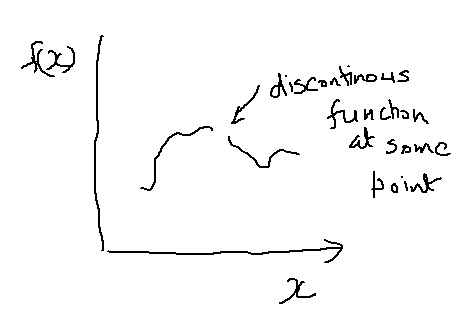 f(x)
discontinous
function
at some
point
x